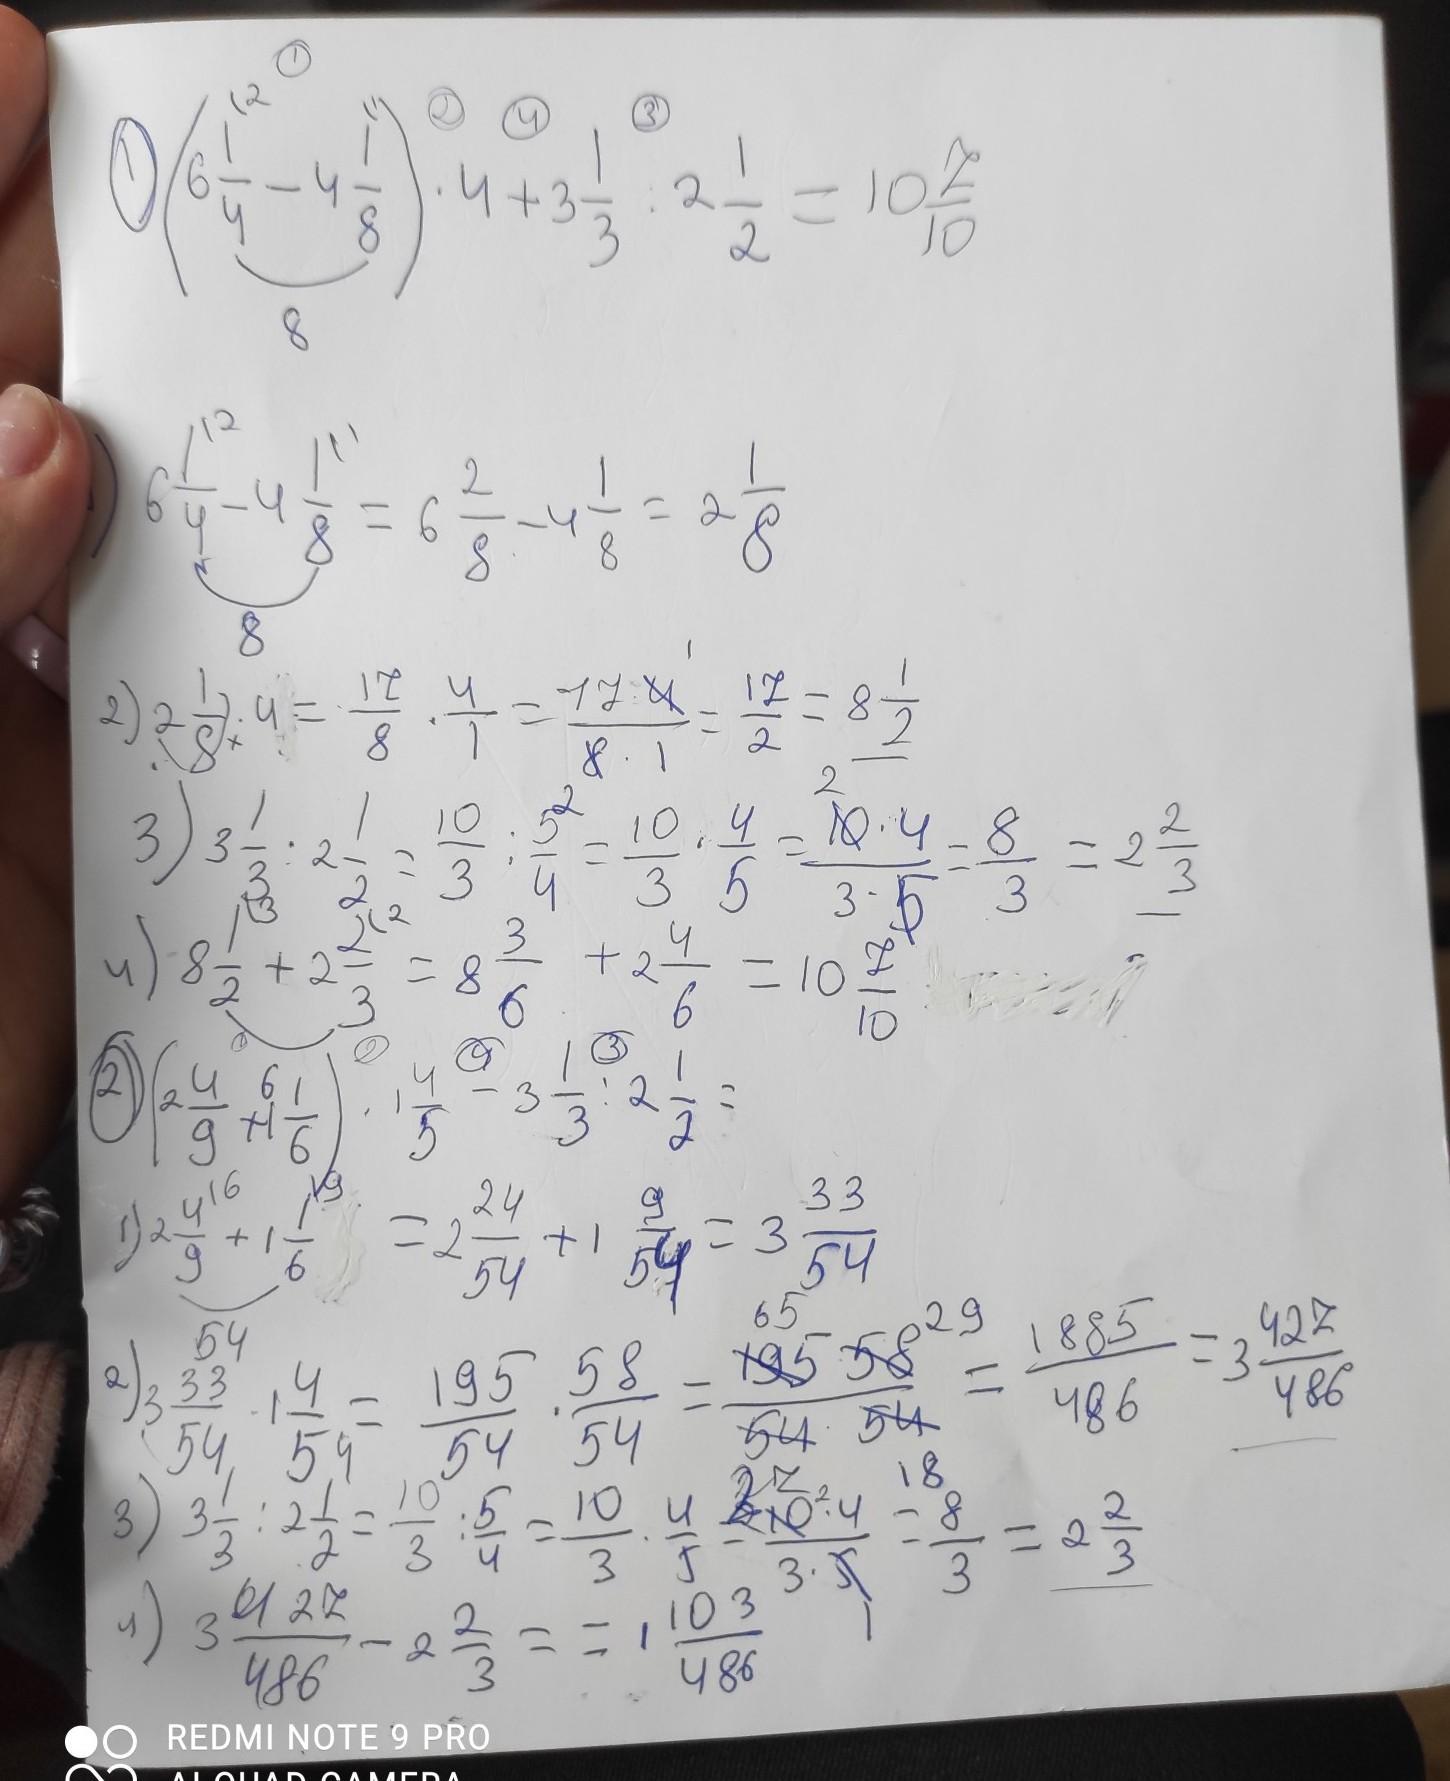 ①
1) (6 1/4 ^(2 − 4 1/8 ^(1) ② · 4 ④ + 3 1/3 ③ : 2 1/2 = 10 7/10
8
) 6 1/4 ^(2 − 4 1/8 ^(1 = 6 2/8 − 4 1/8 = 2 1/8
8
2) 2 1/8 · 4 = 17/8 · 4/1 = 17·4/8·1 = 17/2 = 8 1/2
3) 3 1/3 : 2 1/2 = 10/3 : 5/4 = 10/3 · 4/5 = 10·4/3·5 = 8/3 = 2 2/3
4) 8 1/2 ^(3 + 2 2/3 ^(2 = 8 3/6 + 2 4/6 = 10 7/10
6
2) (2 4/9 + 1 1/6) ② · 1 4/5 ④ − 3 1/3 ③ : 2 1/2 =
1) 2 4/9 ^(6 + 1 1/6 ^(9 = 2 24/54 + 1 9/54 = 3 33/54
54
2) 3 33/54 · 1 4/54 = 195/54 · 58/54 = 195 58/54 · 54 = 1885/486 = 3 427/486
65 29
27 18
3) 3 1/3 : 2 1/2 = 10/3 : 5/4 = 10/3 · 4/5 = 10·4/3·5 = 8/3 = 2 2/3
4) 3 427/486 − 2 2/3 = = 1 103/486
REDMI NOTE 9 PRO
AI QUAD CAMERA